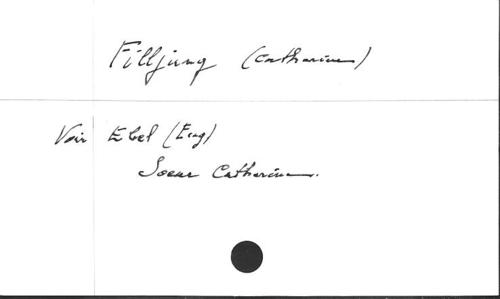 Filljung (Catherine)
Voir Ebel (Eug)
Soeur Catherine.